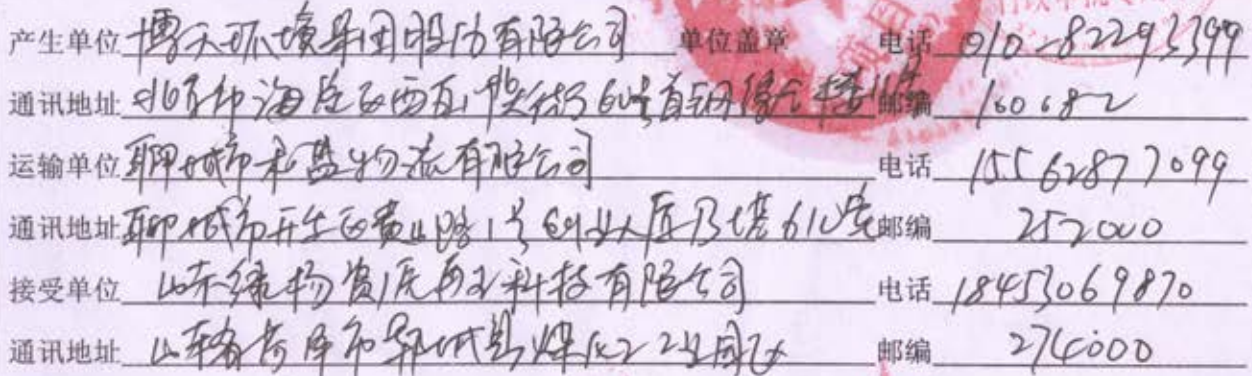 产生单位 博天环境集团股份有限公司 单位盖章 电话 010-82293399
通讯地址 北京市海淀区西直门北大街60号首钢综合楼11层 邮编 100082
运输单位 聊城市禾盛物流有限公司 电话 15562877099
通讯地址 聊城市开发区黄山路1号创业大厦B塔610室 邮编 252000
接受单位 山东绿扬资源再生科技有限公司 电话 18453069870
通讯地址 山东省菏泽市郓城县煤化工工业园区 邮编 274000